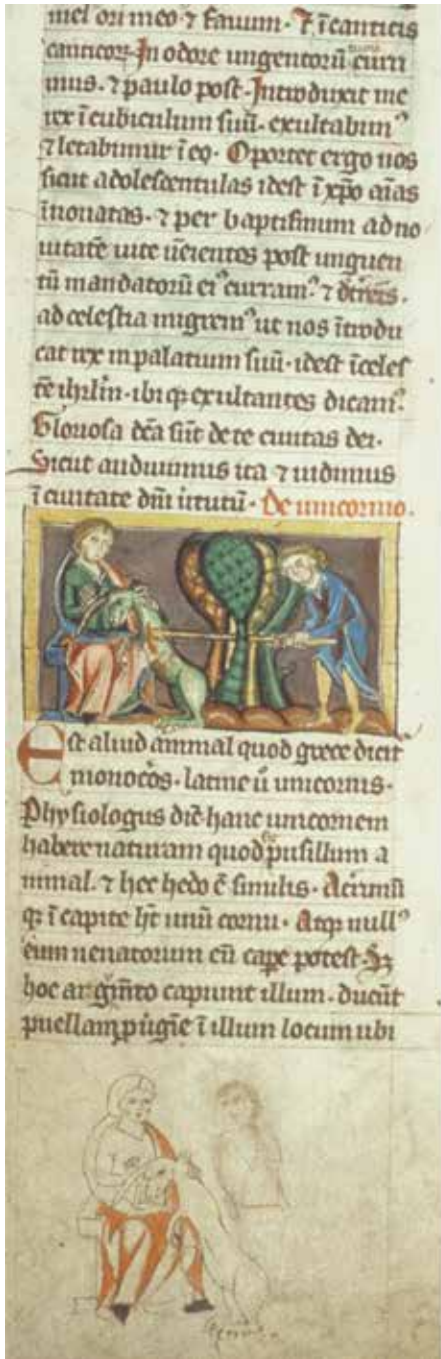 mel ori meo ⁊ fauum. ⁊ ī canticis
canticoꝝ. In odore ungentorū curri
mus. ⁊ paulo post. Introduxit me
rex ī cubiculum suū. exultabimꝰ
⁊ letabimur ī eo. Oportet ergo nos
sicut adolescentulas idest ī xp̄o aīas
īnouatas. ⁊ per baptismum ad no
uitatē uite uēientes post unguen
tū mandatoꝝ eiꝰ curramꝰ ⁊
ad celestia migremꝰ ut nos ītrodu
cat rex in palatium suū. idest ī celes
tē ihrlm̄. ibi qꝫ exultantes dicamꝰ.
Gloriosa dc̄a sūt de te ciuitas dei.
Sicut audiuimus ita ⁊ uidimus
ī ciuitate dn̄i uirtutū. De unicornio.
Est aliud animal quod grece dicit᷑
monoceros. latine ū unicornus.
Physiologus dic̄ hanc unicornem
habere naturam quod pusillum a
nimal. ⁊ hec hedo ē similis. Acrimū
qꝫ ī capite ht̄ unū cornu. Atqꝫ nullꝰ
eum uenatorum cū capē potest. Sꝫ
hoc argumto capiunt illum. ducūt
puellam ꝟgīe ī illum locum ubi